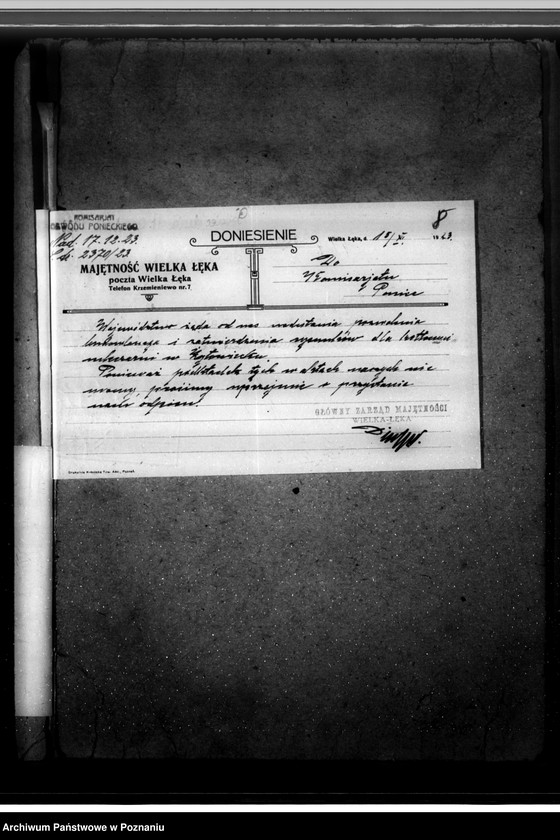 KOMISARJAT
OBWODU PONIECKIEGO
Nad. 17.12.23.
2370/23
8
DONIESIENIE
Wielka Łęka, d. 15/XI 1923.
MAJĘTNOŚĆ WIELKA ŁĘKA
poczta Wielka Łęka
Telefon Krzemieniewo nr. 7
Do
Komisarjatu
w Poniecu
Województwo żąda od nas nadesłania pozwolenia
budowlanego i zatwierdzenia rysunków dla kotłowni
mleczarni w Żytowiecku.
Ponieważ podkładek tych w aktach naszych nie
mamy, prosimy uprzejmie o przysłanie
nam odpisu.
GŁÓWNY ZARZĄD MAJĘTNOŚCI
WIELKA-ŁĘKA
Archiwum Państwowe w Poznaniu